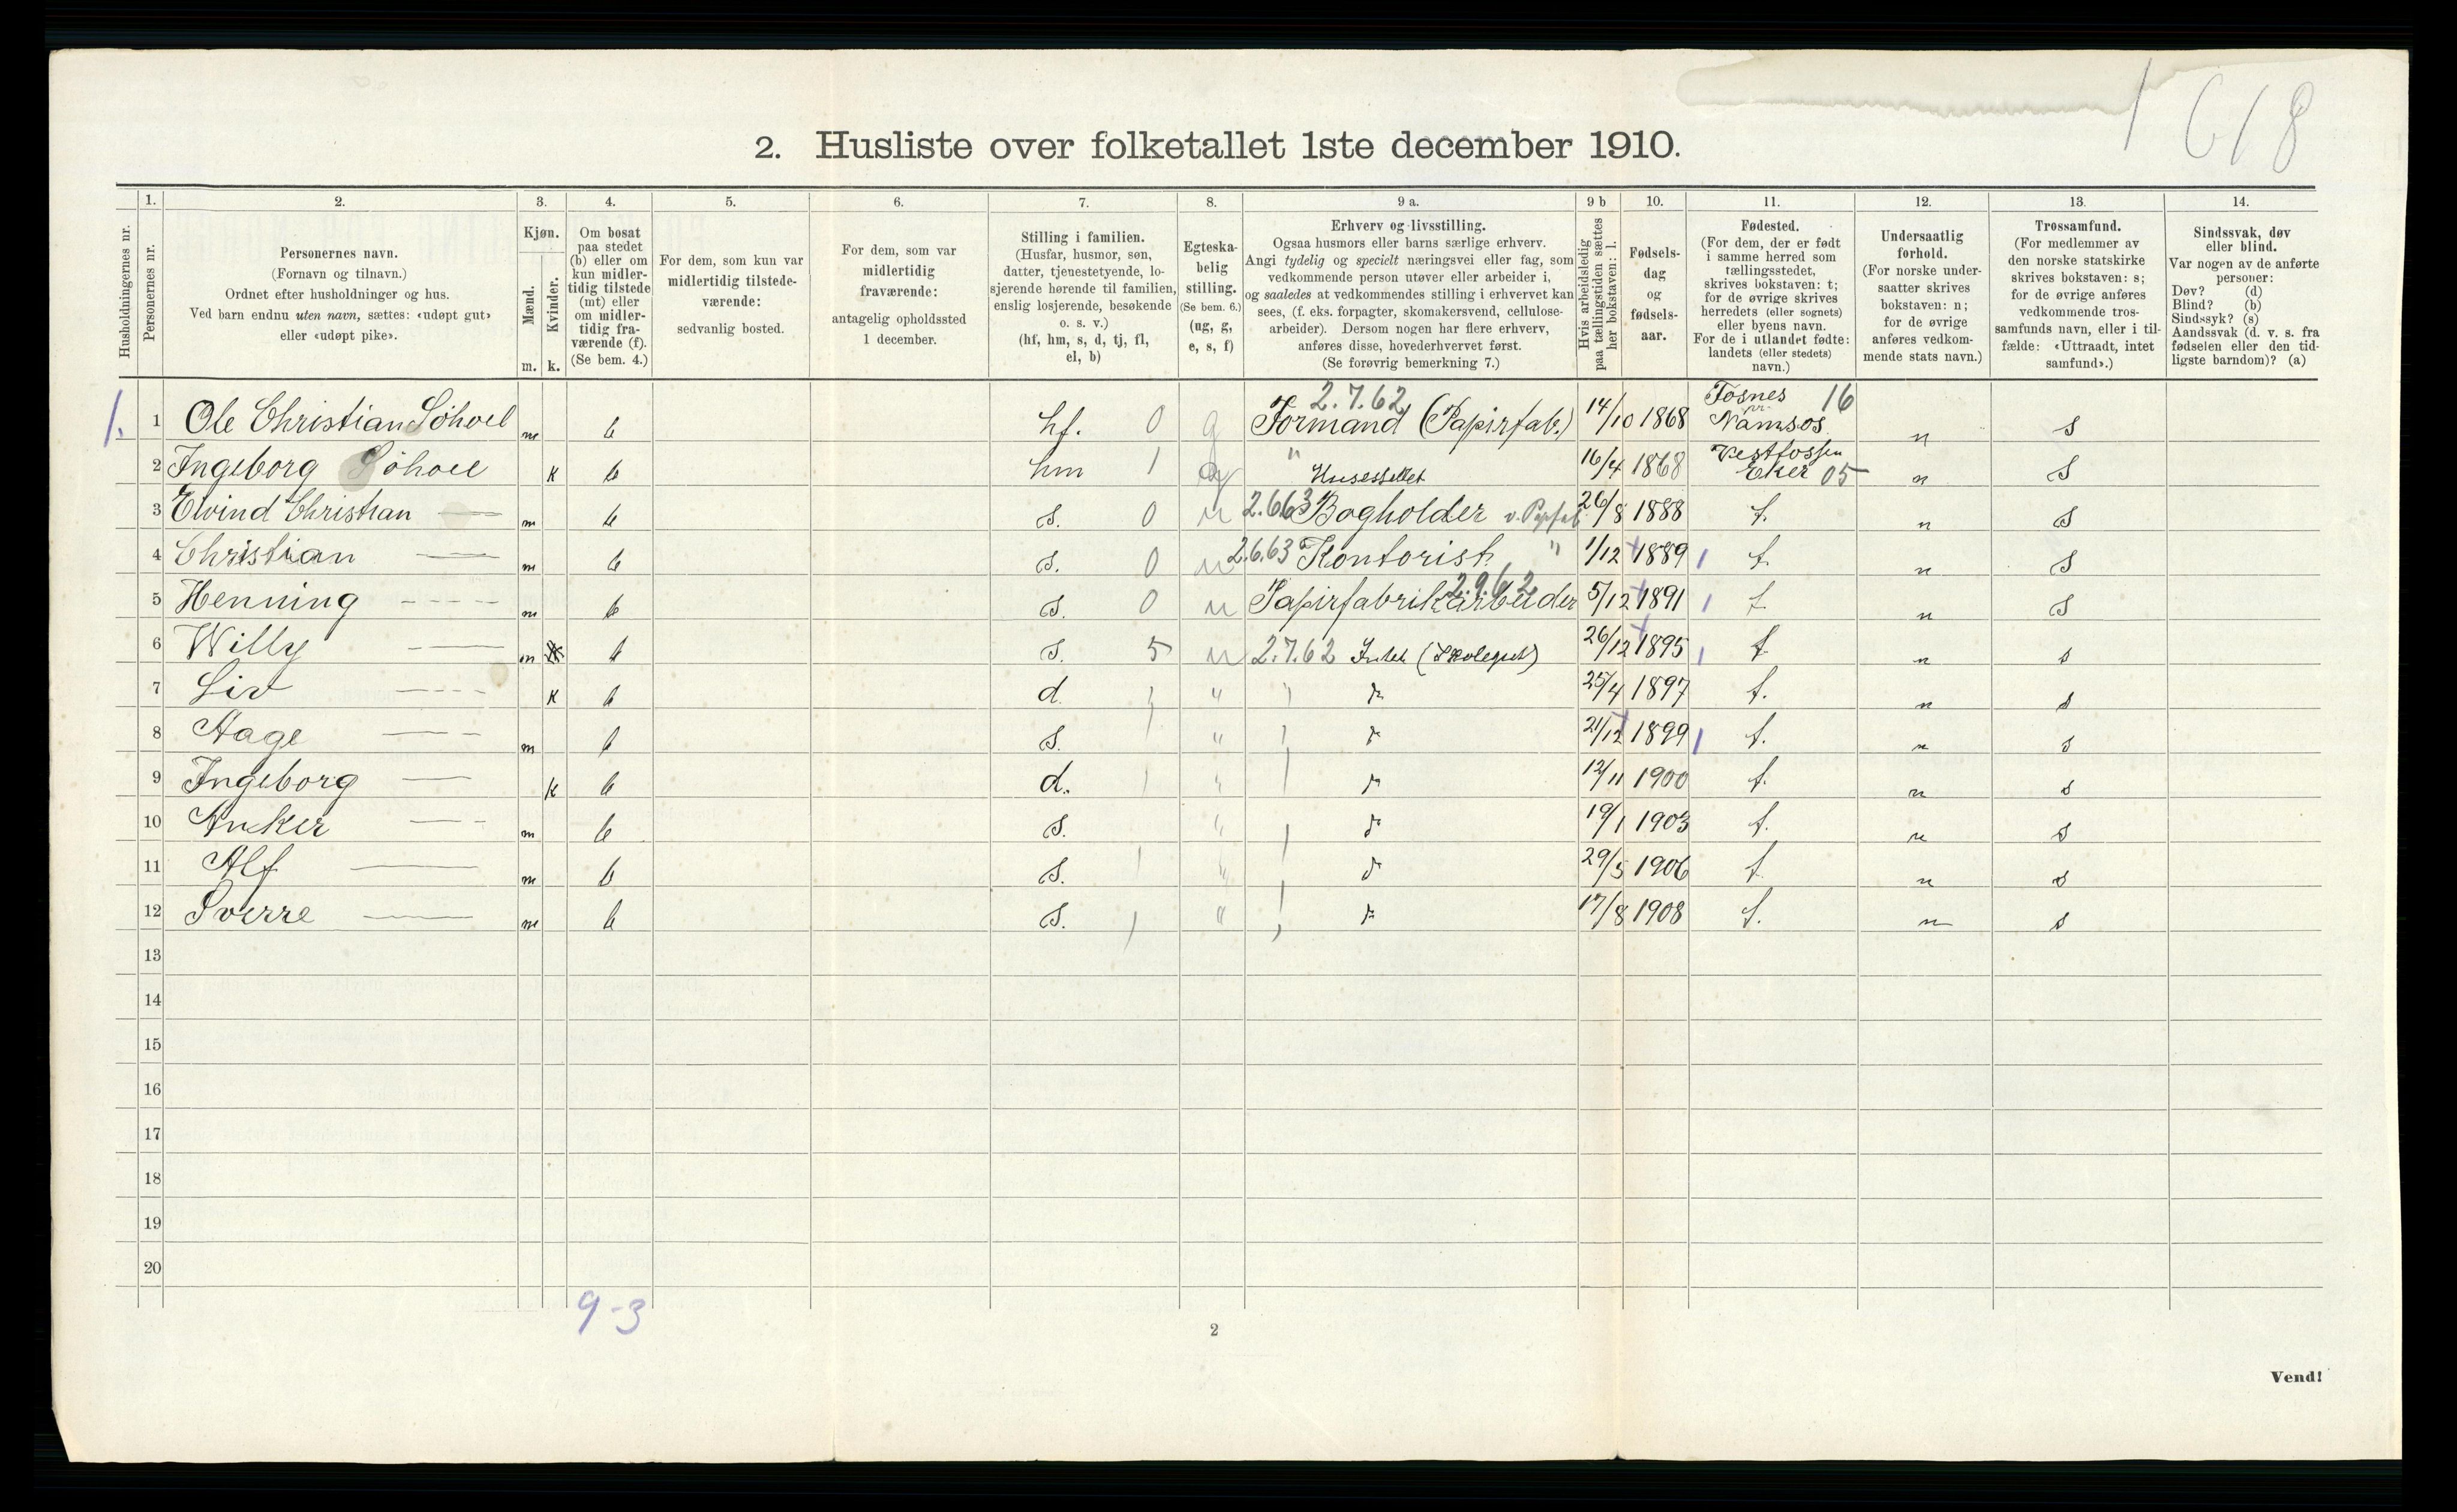 1 618
2. Husliste over folketallet 1ste december 1910.
Husholdningernes nr.
1. Personernes nr.
2. Personernes navn.
(Fornavn og tilnavn.)
Ordnet efter husholdninger og hus.
Ved barn endnu uten navn, sættes: «udøpt gut»
eller «udøpt pike».
3. Kjøn.
Mænd. Kvinder.
m. k.
4. Om bosat
paa stedet
(b) eller om
kun midler-
tidig tilstede
(mt) eller
om midler-
tidig fra-
værende (f).
(Se bem. 4.)
5. For dem, som kun var
midlertidig tilstede-
værende:
sedvanlig bosted.
6. For dem, som var
midlertidig
fraværende:
antagelig opholdssted
1 december.
7. Stilling i familien.
(Husfar, husmor, søn,
datter, tjenestetyende, lo-
sjerende hørende til familien,
enslig losjerende, besøkende
o. s. v.)
(hf, hm, s, d, tj, fl,
el, b)
8. Egteska-
belig
stilling.
(Se bem. 6.)
(ug, g,
e, s, f)
9 a. Erhverv og livsstilling.
Ogsaa husmors eller barns særlige erhverv.
Angi tydelig og specielt næringsvei eller fag, som
vedkommende person utøver eller arbeider i,
og saaledes at vedkommendes stilling i erhvervet kan
sees, (f. eks. forpagter, skomakersvend, cellulose-
arbeider). Dersom nogen har flere erhverv,
anføres disse, hovederhvervet først.
(Se forøvrig bemerkning 7.)
9 b Hvis arbeidsledig
paa tællingstiden sættes
her bokstaven: l.
10. Fødsels-
dag
og
fødsels-
aar.
11. Fødested.
(For dem, der er født
i samme herred som
tællingsstedet,
skrives bokstaven: t;
for de øvrige skrives
herredets (eller sognets)
eller byens navn.
For de i utlandet fødte:
landets (eller stedets)
navn.)
12. Undersaatlig
forhold.
(For norske under-
saatter skrives
bokstaven: n;
for de øvrige
anføres vedkom-
mende stats navn.)
13. Trossamfund.
(For medlemmer av
den norske statskirke
skrives bokstaven: s;
for de øvrige anføres
vedkommende tros-
samfunds navn, eller i til-
fælde: «Uttraadt, intet
samfund».)
14. Sindssvak, døv
eller blind.
Var nogen av de anførte
personer:
Døv? (d)
Blind? (b)
Sindssyk? (s)
Aandssvak (d. v. s. fra
fødselen eller den tid-
ligste barndom)? (a)
2.7.62 Fosnes 16
1. 1 Ole Christian Söhoel m b hf. 0 g Formand (Papirfab.) 14/10 1868 Namsos n s
Vestfossen
2 Ingeborg Söhoel k b hm 1 g " Husstellet 16/4 1868 Eker 05 n s
3 Eivind Christian — m b s. 0 u 2.6.63 Bogholder v. Papfab. 26/8 1888 t. n s
4 Christian — m b s. 0 u 2.6.63 Kontorist " 1/12 1889 1 t. n s
5 Henning — m b s. 0 u Papirfabrikarbeider 2.9.62 5/12 1891 1 t n s
6 Willy — m b s. 5 u 2.7.62 Intet (Skolegut) 26/12 1895 1 t n s
7 Liv — k b d " 25/4 1897 t. n s
8 Aage — m b s. " 21/12 1899 1 t. n s
9 Ingeborg — k b d. " 12/11 1900 t. n s
10 Anker — m b s. " 19/1 1903 t. n s
11 Alf — m b s. " 29/5 1906 t n s
12 Sverre — m b s. " 17/8 1908 t. n s
13
14
15
16
17
18
19
20
9-3
2
Vend!